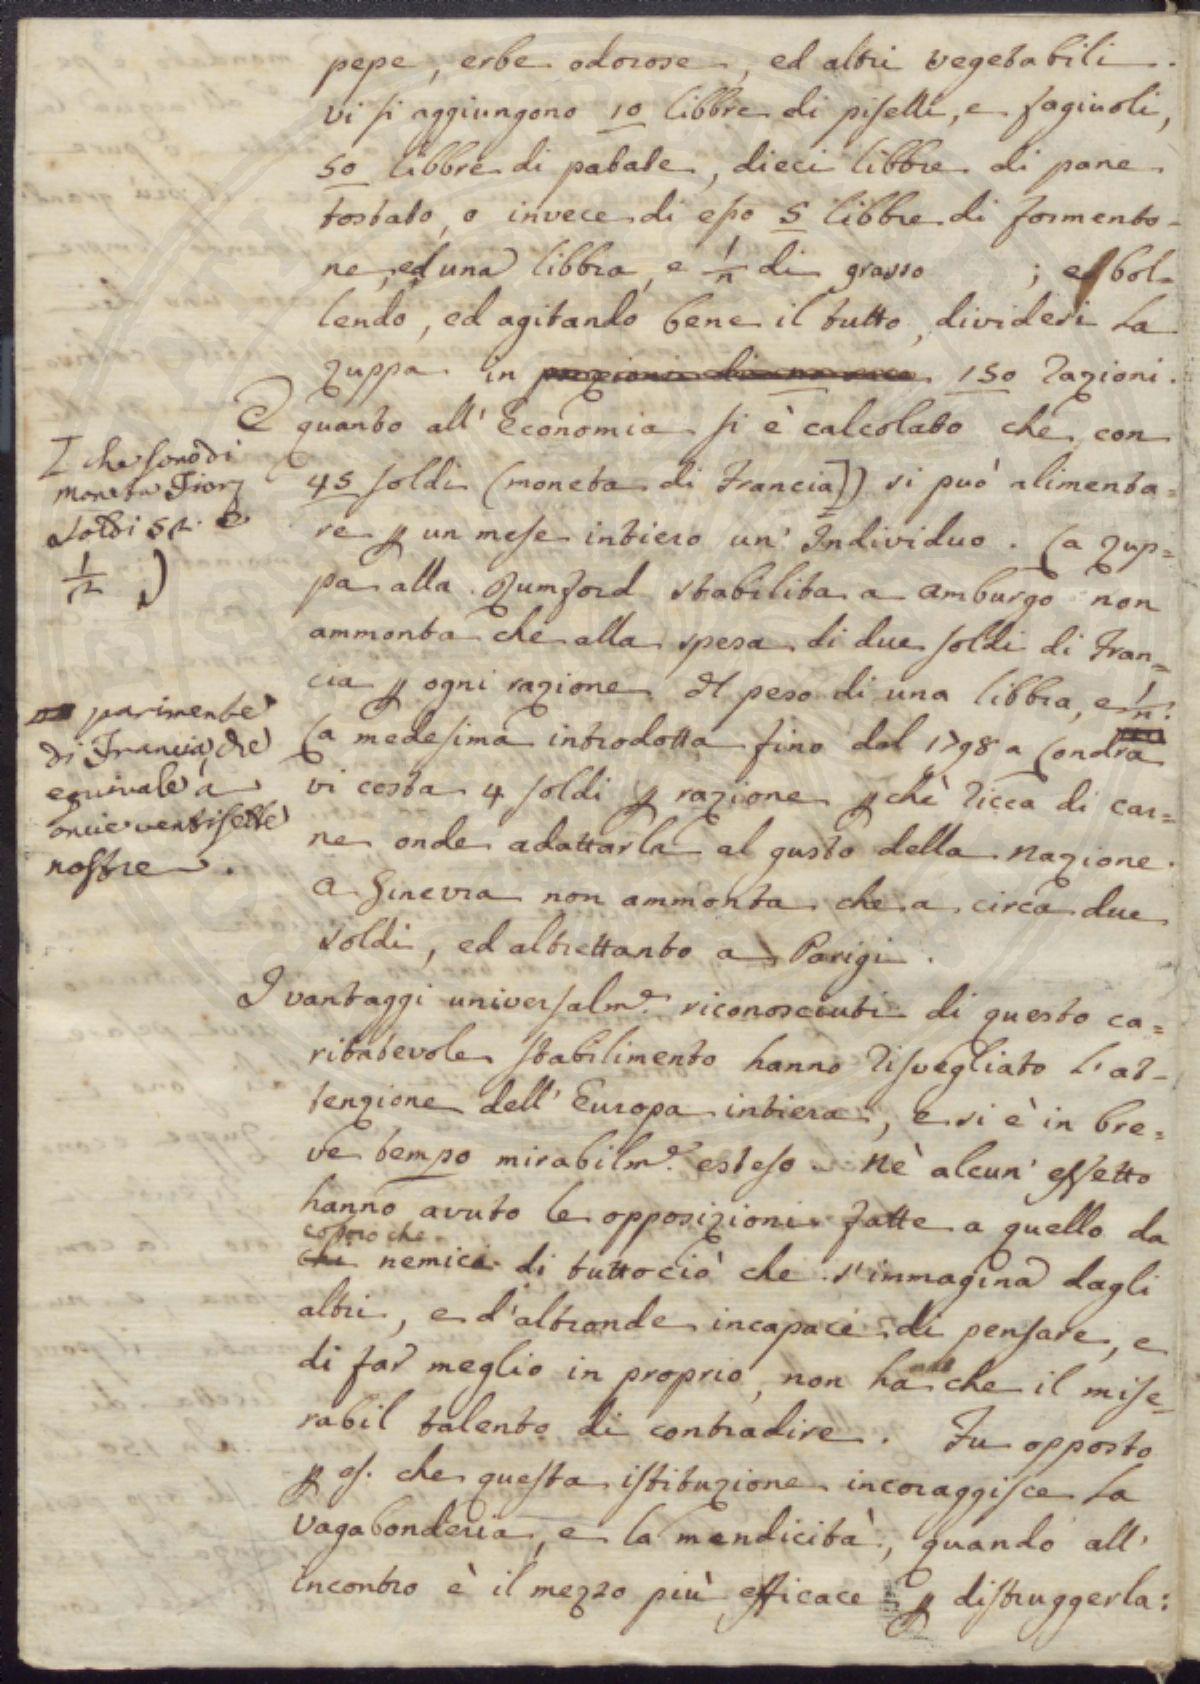 pepe, erbe odorose, ed altri vegetabili.
vi si aggiungono 10 libbre di piselli, e fagiuoli,
50 libbre di patate, dieci libbre di pane
tostato, o invece di esso 5 libbre di formento=
ne, ed una libbra, e 1/2 di grasso ; e bol=
lendo, ed agitando bene il tutto, dividesi la
zuppa in 150 razioni.
E quanto all' Economia si è calcolato che con
45 soldi (moneta di Francia]) si può alimenta=
re p un mese intiero un' Individuo. La zup=
pa alla Rumford stabilita a Amburgo non
ammonta che alla spesa di due soldi di Fran=
cia p ogni razione del peso di una libbra, e 1/2:
La medesima introdotta fino dal 1798 a Londra
vi costa 4 soldi p razione pchè ricca di car=
ne onde adattarla al gusto della Nazione.
A Ginevra non ammonta che a circa due
soldi, ed altrettanto a Parigi.
I vantaggi universalm.e riconosciuti di questo ca=
ritatevole stabilimento hanno risvegliato l'at=
tenzione dell' Europa intiera, e si è in bre=
ve tempo mirabilm.e esteso. Nè alcun' effetto
hanno avuto le opposizioni fatte a quello da
costoro che
chi nemici di tuttociò che s'immagina dagli
altri, e d'altronde incapaci di pensare, e
di far meglio in proprio, non ha che il mise=
rabil talento di contradire. Fu opposto
p es. che questa istituzione incoraggisce la
vagabonderia, e la mendicità, quando all'
incontro è il mezzo più efficace p distruggerla:
I che sono di
moneta Fior
soldi 52 e
1/2 )
parimente
di Francia, che
equivale a
oncie ventisette
nostre.